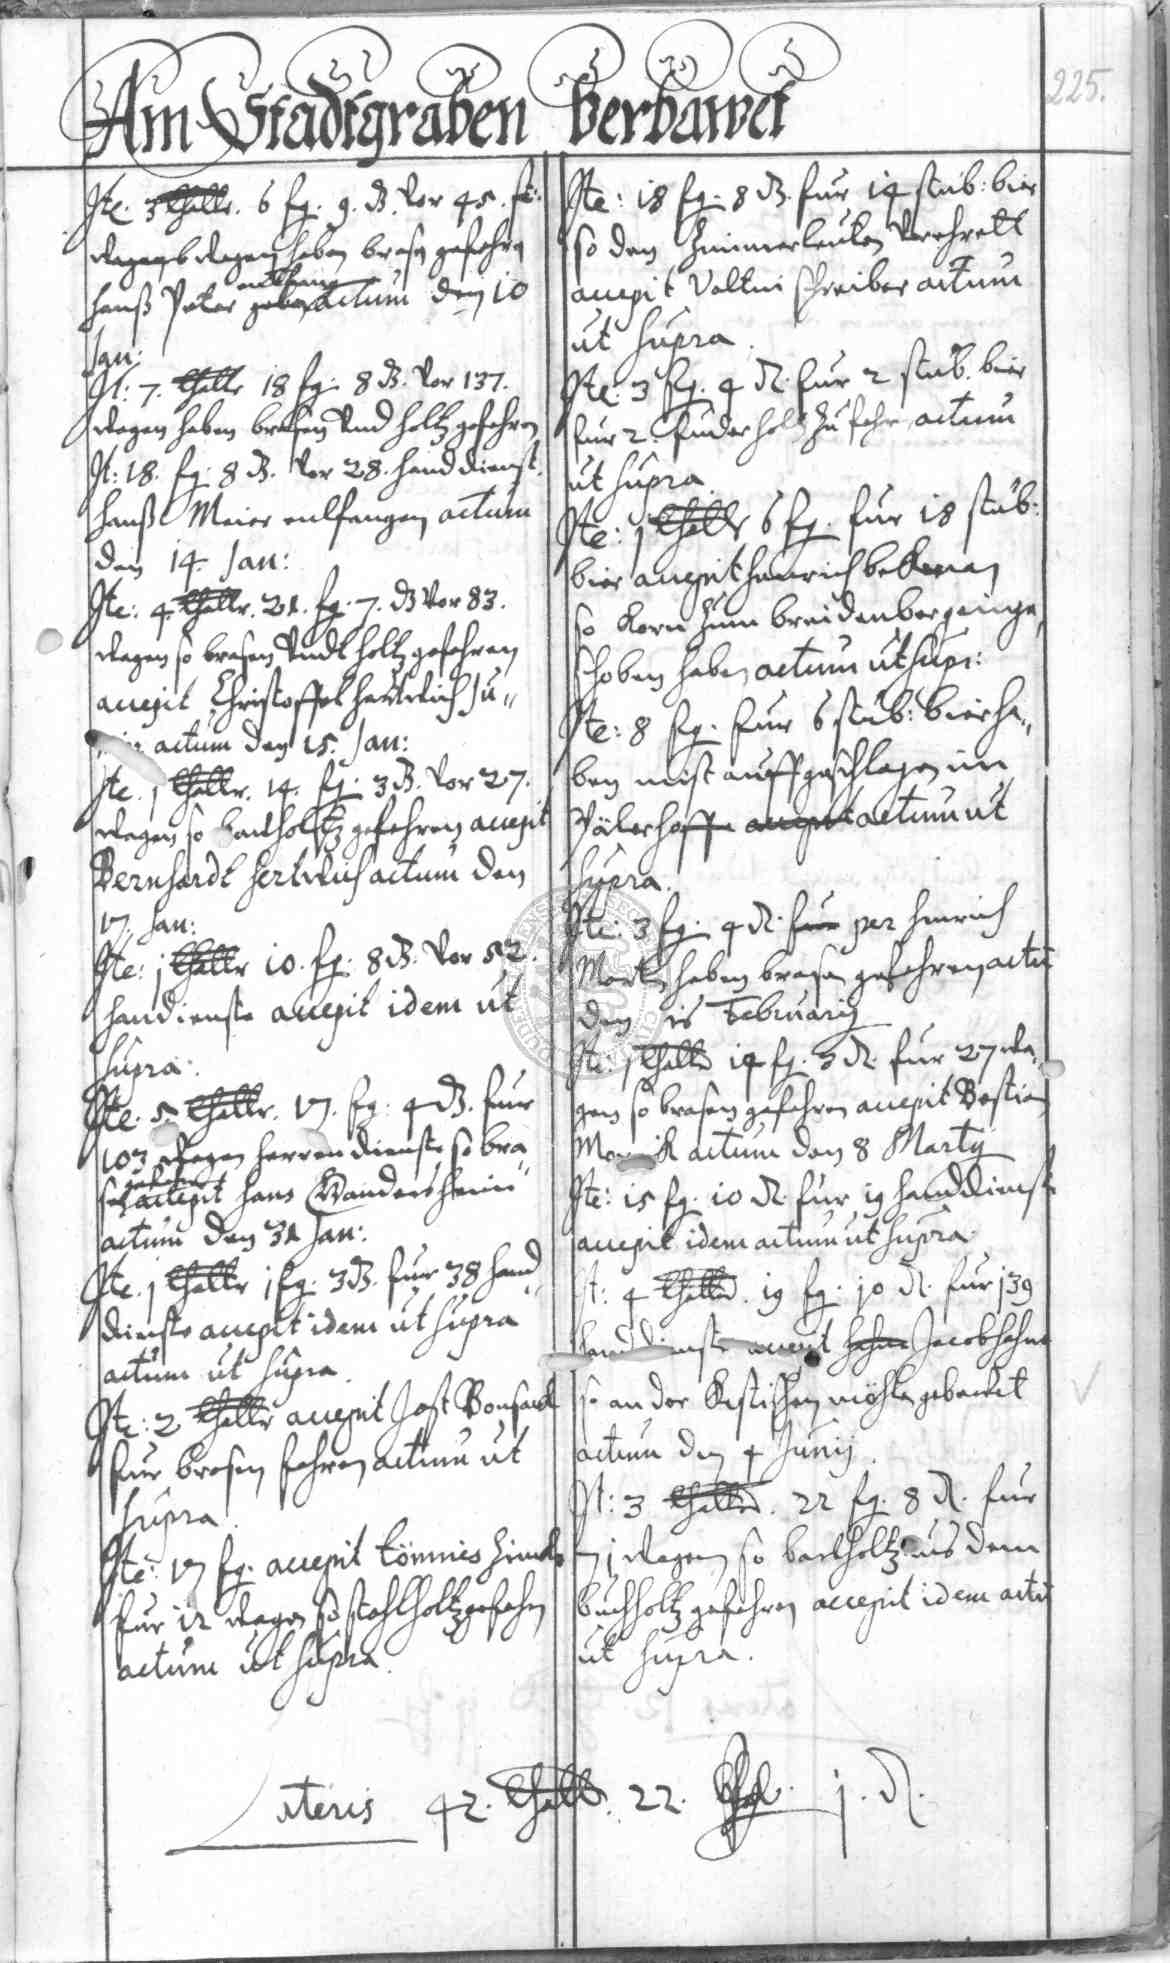 225.
Am Stadtgraben Verbawet
Ite. 3 thallr. 6 fg. 9. d. vor 45. fr:
wagen haben brasen gefahrn
entfang
hanß Peter actum den 10
Jan:
It: 7. thallr 18 fg: 8 d. vor 137.
wagen haben brasen und holtz gefahren
It: 18. fg: 8 d. vor 28. handdienst.
hanß Meier entfangen actum
den 14. Jan:
Ite: 4. thallr. 21. fg. 7. d vor 83.
wagen so brasen undt holtz gefahren
accepit Christoffel
actum den 15. Jan:
Ite. j thallr. 14. fg: 3 d. vor 27.
wagen so barholtz gefahren accepit
Bernhardt hertwich actum den
17. Jan:
Ite: j thallr 10. fg: 8 d. vor 52.
handienste accepit idem ut
supra.
Ite: 5. thallr. 17. fg: 4 d. fur
103 wagen herren dienste so bra
gefahrn
sen accepit hans Gandersheim
actum den 31 Jan:
Ite. j thallr j fg. 3 d. fur 38 hand
dienste accepit idem ut supra
actum ut supra.
Ite: 2 thallr accepit Jost Bonsack
fur brasen fahren actum ut
supra.
Ite: 17 fg. accepit Tönnies
fur 12 wagen so stahlholtz gefahrn
actum ut supra.
Ite: 18 fg. 8 d. fur 14 stub: bier
so den Zimmerleuten verehrett
accepit Valtin schreiber actum
ut supra.
Ite: 3 fg. 4 d. fur 2 stub. bier
fur 2. fuder holtz zu fahr actum
ut supra
Ite: j thallr 6 fg. fur 18 stub:
bier accepit hinrich
so korn zum breidenberge
schoben haben actum ut supr:
Ite: 8 fg. fur 6 stub: bier ha„
ben mist auffgeschlagen im
accepit actum ut
supra.
Ite: 3 fg. 4 d. fur per hinrich
haben brasen gefahren actu
den 15 February
Ite. j thallr 14 fg. 3 d. fur 27 wa„
gen so brasen gefahren accepit Bastian
actum den 8 Marty
Ite: 15 fg. 10 d. fur 19 handdienste
accepit idem actum ut supra
It: 4 thallr. 19 fg. 10 d. fur 139
handdienste accepit hahne Jacob hahne
so an der mohle gebawet
actum den 4 Junij.
It: 3 thallr. 22 fg. 8 d. fur
71 wagen so barholtz aus dem
buchholtz gefahren accepit idem actu
ut supra.
Lateris 42. thallr. 22. fg. j. d.